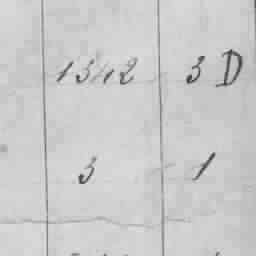 1342 3 D
3 1